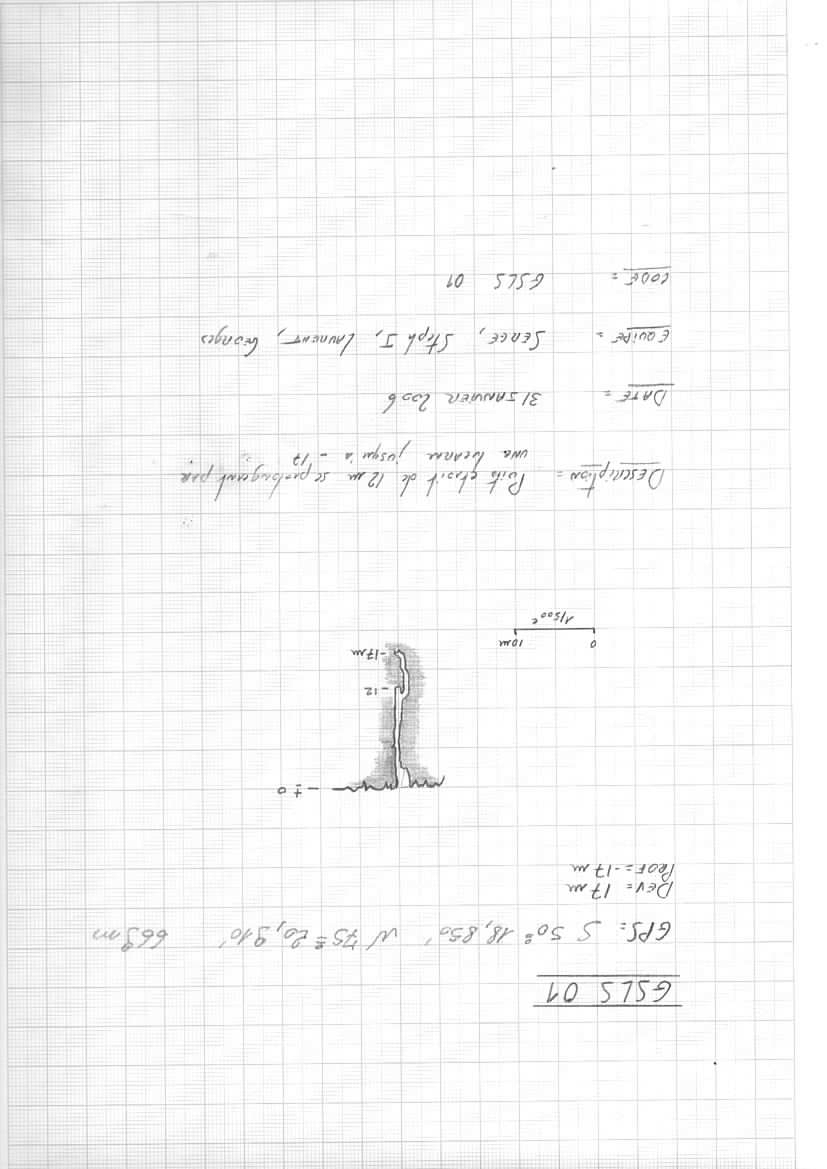 GSLS 01
GPS: S 50° 18,850' W 75° 20,910' 669 m
DEV = 17 m
PROF = -17 m
± 0
-12
-17m
0 10m
1/500e
DESCRIPTION = Puits étroit de 12 m se prolongeant par
une lucarne jusqu'à -17
DATE = 31 JANVIER 2006
EQUIPE = SERGE, Steph J, LAURENT, Georges
CODE = GSLS 01